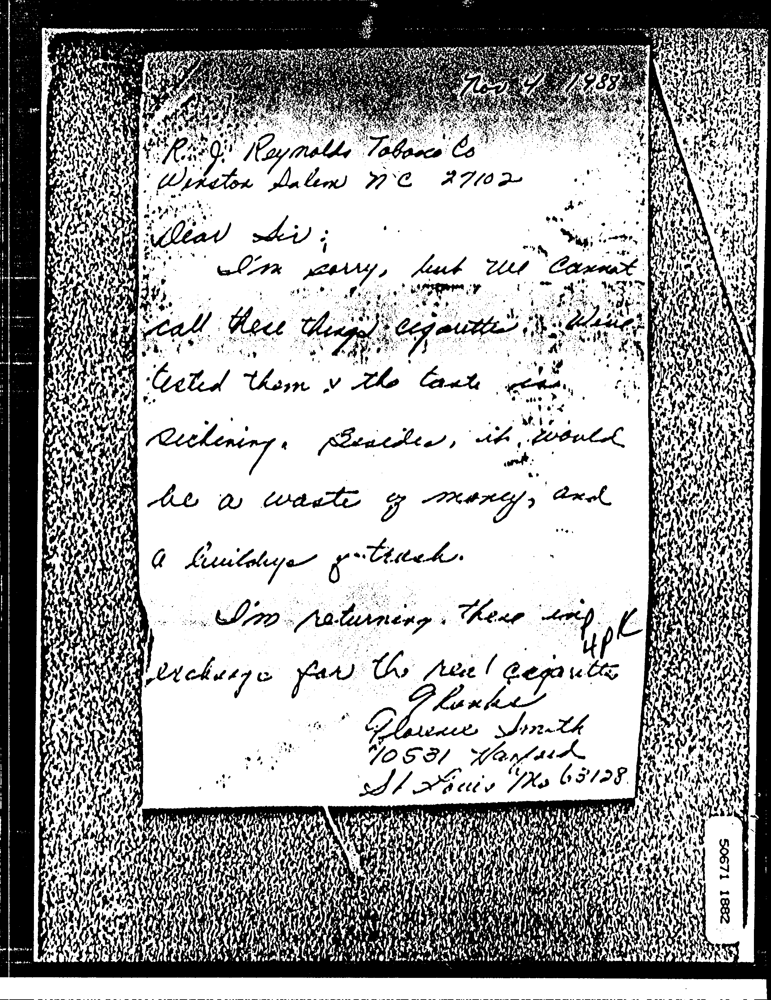 Nov 4 1988
R. J. Reynolds Tobacco Co
Winston Salem NC 27102
Dear Sir:
I'm sorry, but we cannot
call these things cigarettes. We've
tested them & the taste is
sickening. Besides, it would
be a waste of money, and
a buildup of trash.
I'm returning these in
4 pk
exchange for the real cigarettes
Thanks
Florence Smith
10531
St Louis Mo 63128
50671 1882